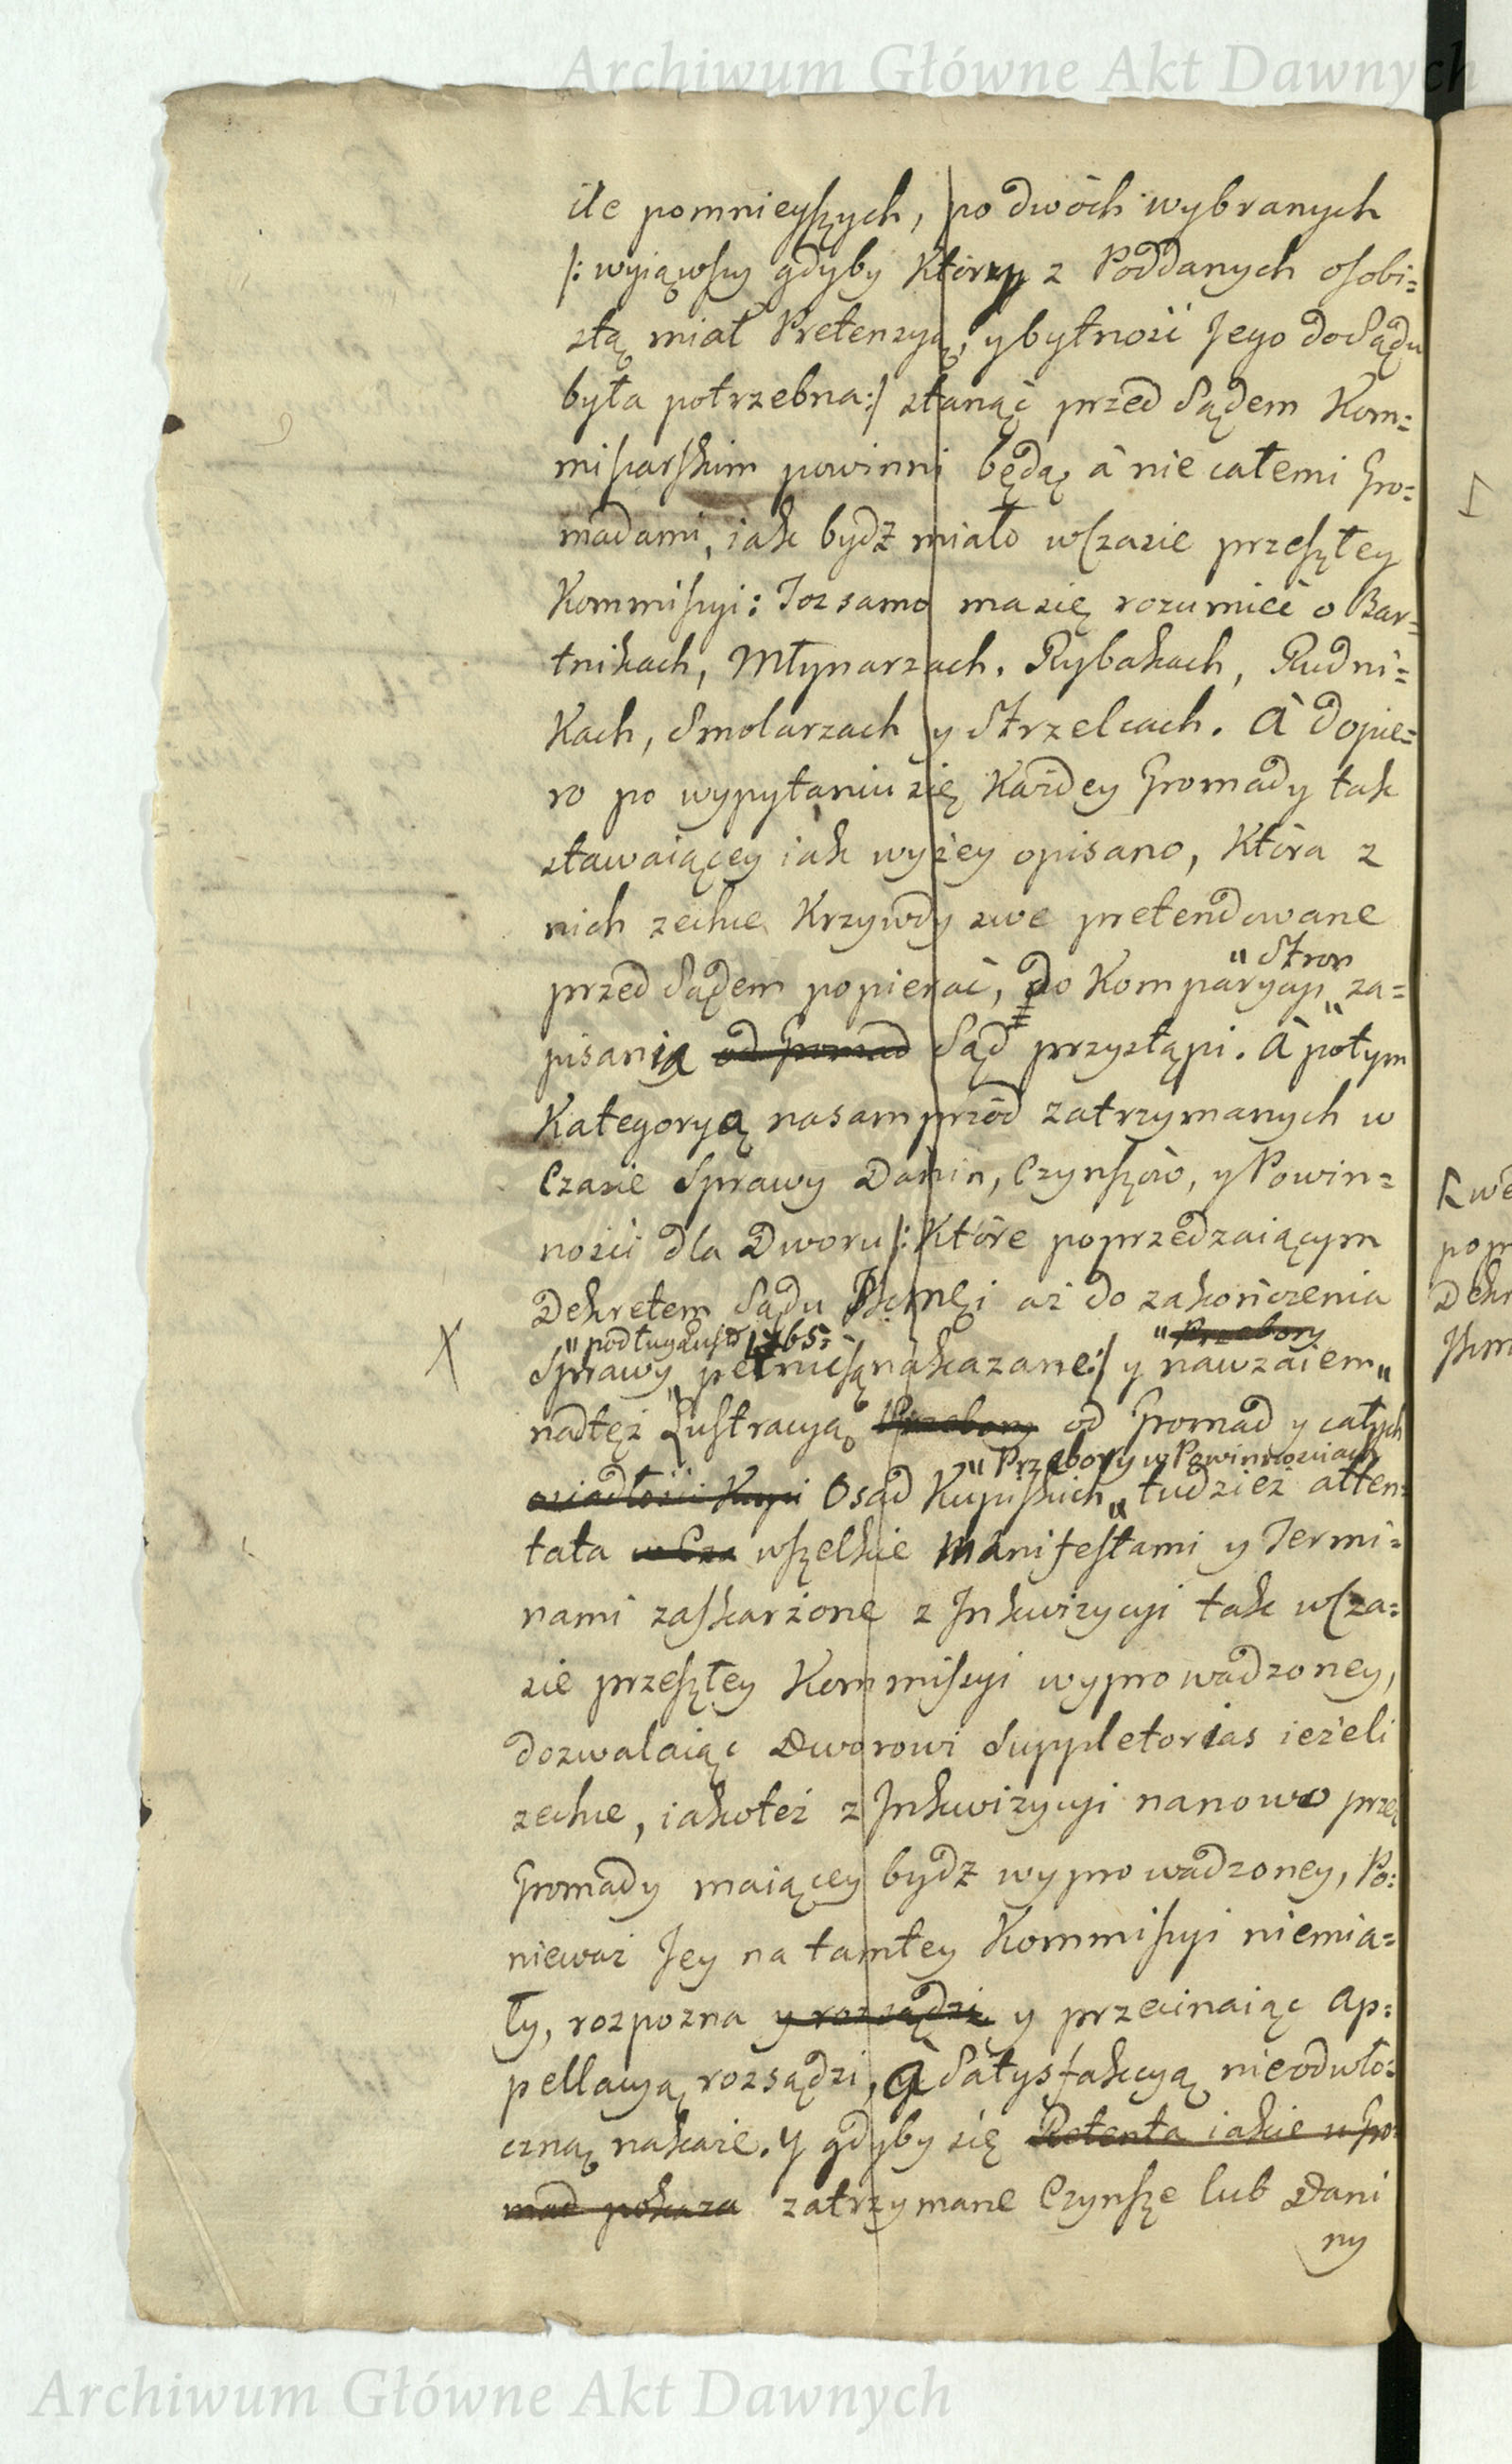 Archiwum Główne Akt Dawnych
ile pomnieyszych, po dwóch wybranych
/: wyiąwszy gdyby Który z Poddanych osobi=
stą miał Pretensyą, y bytność Jego do Sądu
była potrzebna:/ stanąć przed Sądem Kom=
missarskim powinni będą à nie całemi Gro=
madami, iak bydź miało w Czasie przeszłey
Kommissyi: Toż samo ma się rozumieć o Bar=
tnikach, Młynarzach, Rybakach, Rudni=
Kach, Smolarzach y Strzelcach. À dopie=
ro po wypytaniu się Każdey Gromady tak
stawaiącey iak wyżey opisano, Która z
nich zechce Krzywdy swe pretendowane
" Stron
przed Sądem popierać, do Komparycyi " za=
pisania od Gromad Sąd przystąpi. À potym
Kategoryą nasamprzód zatrzymanych w
Czasie Sprawy Danin, Czynszów, y Powin=
ności dla Dworu /: Które poprzedzaiącym
Dekretem Sądu aż do zakończenia
" podług 1765: " Przebory
X Sprawy " pełnić są nakazane:/ y nawzaiem "
nad też Lustracyą Przebory od Gromad y całych
" Przebory w Powinnościach
osiadłości Kupi Osad Kupiskich " tudzież atten=
tata w Cza wszelkie Manifestami y Termi=
nami zaskarżone z Inkwizycyi tak w Cza=
sie przeszłey Kommissyi wyprowadzoney,
dozwalaiąc Dworowi Suppletorias ieżeli
zechce, iakoteż z Inkwizycyi nanowo prze
Gromady maiącey bydź wyprowadzoney, Po=
nieważ Jey na tamtey Kommissyi niemia=
ły, rozpozna y rozsądzi, y przecinaiąc Ap=
pellacyą rozsądzi, à Satysfakcyą nieodwło=
czną nakaże. Y gdyby się Retenta iakie u Gro=
mad pokaza zatrzymane Czynsze lub Dani
ny
Kwe
pop
Dekr
Archiwum Główne Akt Dawnych